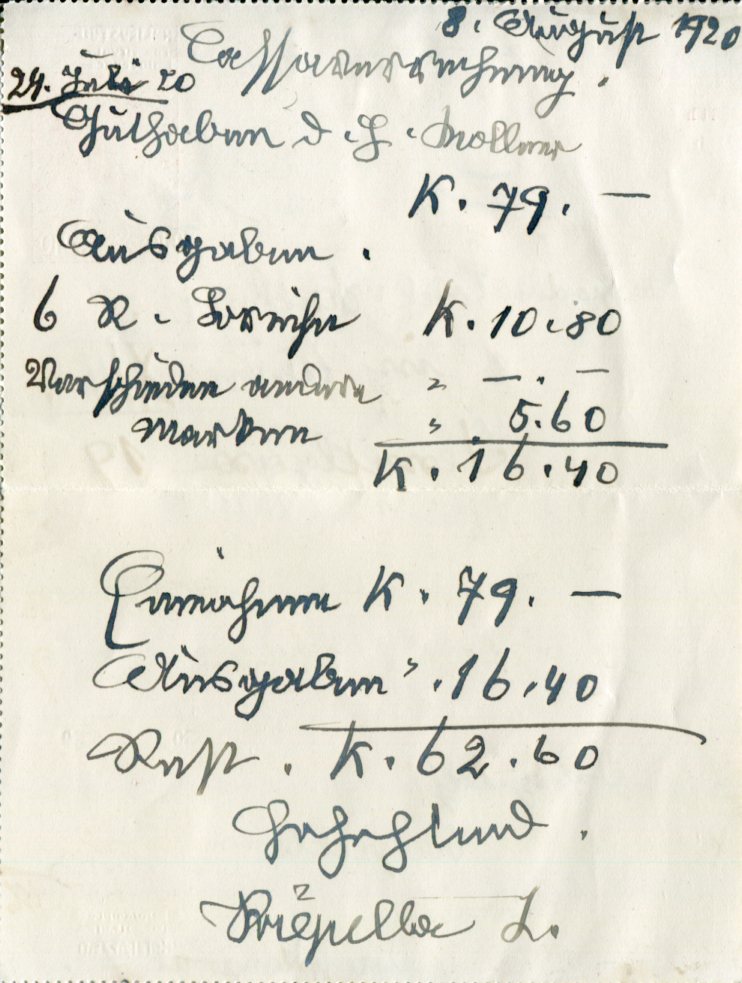 8. August 1920
Cassaverrechnung.
24. Juli 20
Guthaben d. H. Mollner
K. 79. —
Ausgaben.
6 R. K. 10.80
Verschiedene andere " —.—
Marken " 5.60
K. 16.40
Einnahmen K. 79. —
Ausgaben " 16.40
Rest. K. 62.60
L.